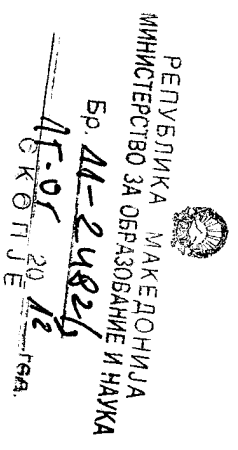 РЕПУБЛИКА МАКЕДОНИЈА
МИНИСТЕРСТВО ЗА ОБРАЗОВАНИЕ И НАУКА
Бр. 11-2482/
15-05 20 12 год.
СКОПЈЕ